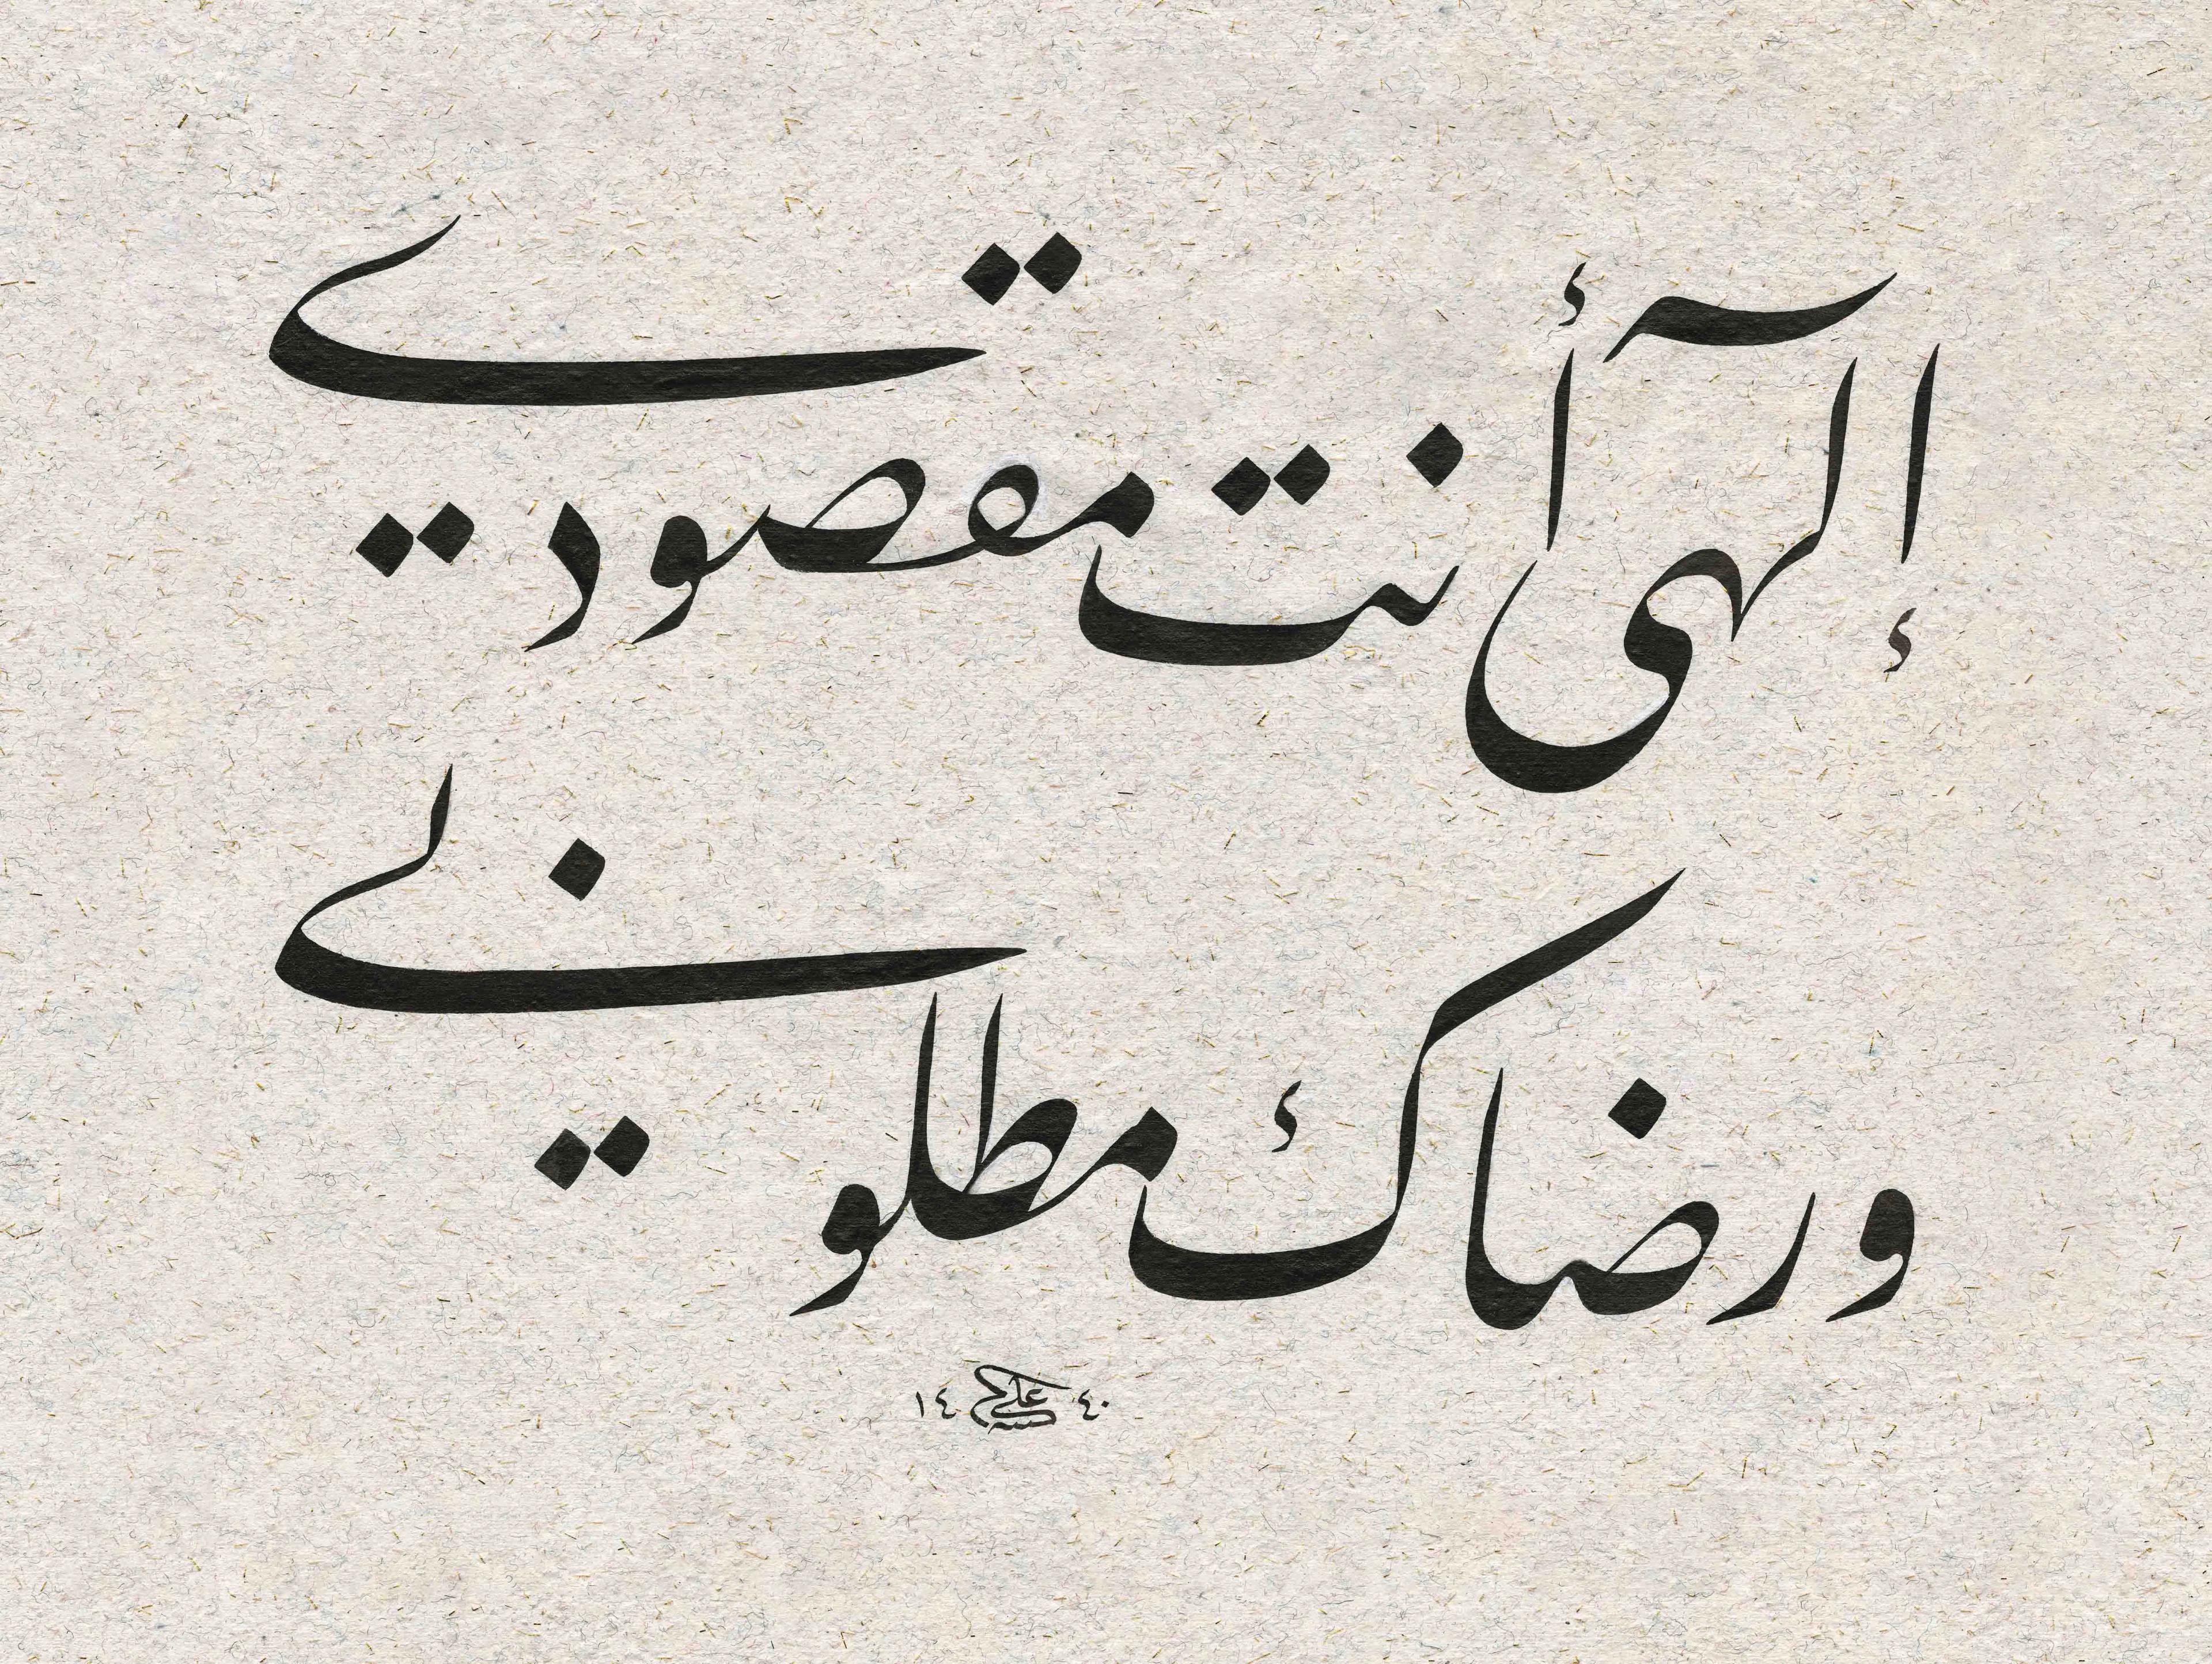 إلهي أنت مقصودي
ورضاك مطلوبي
علي ١٤٤٠